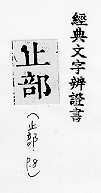 經典文字辨證書
止部
(止部 P.8)